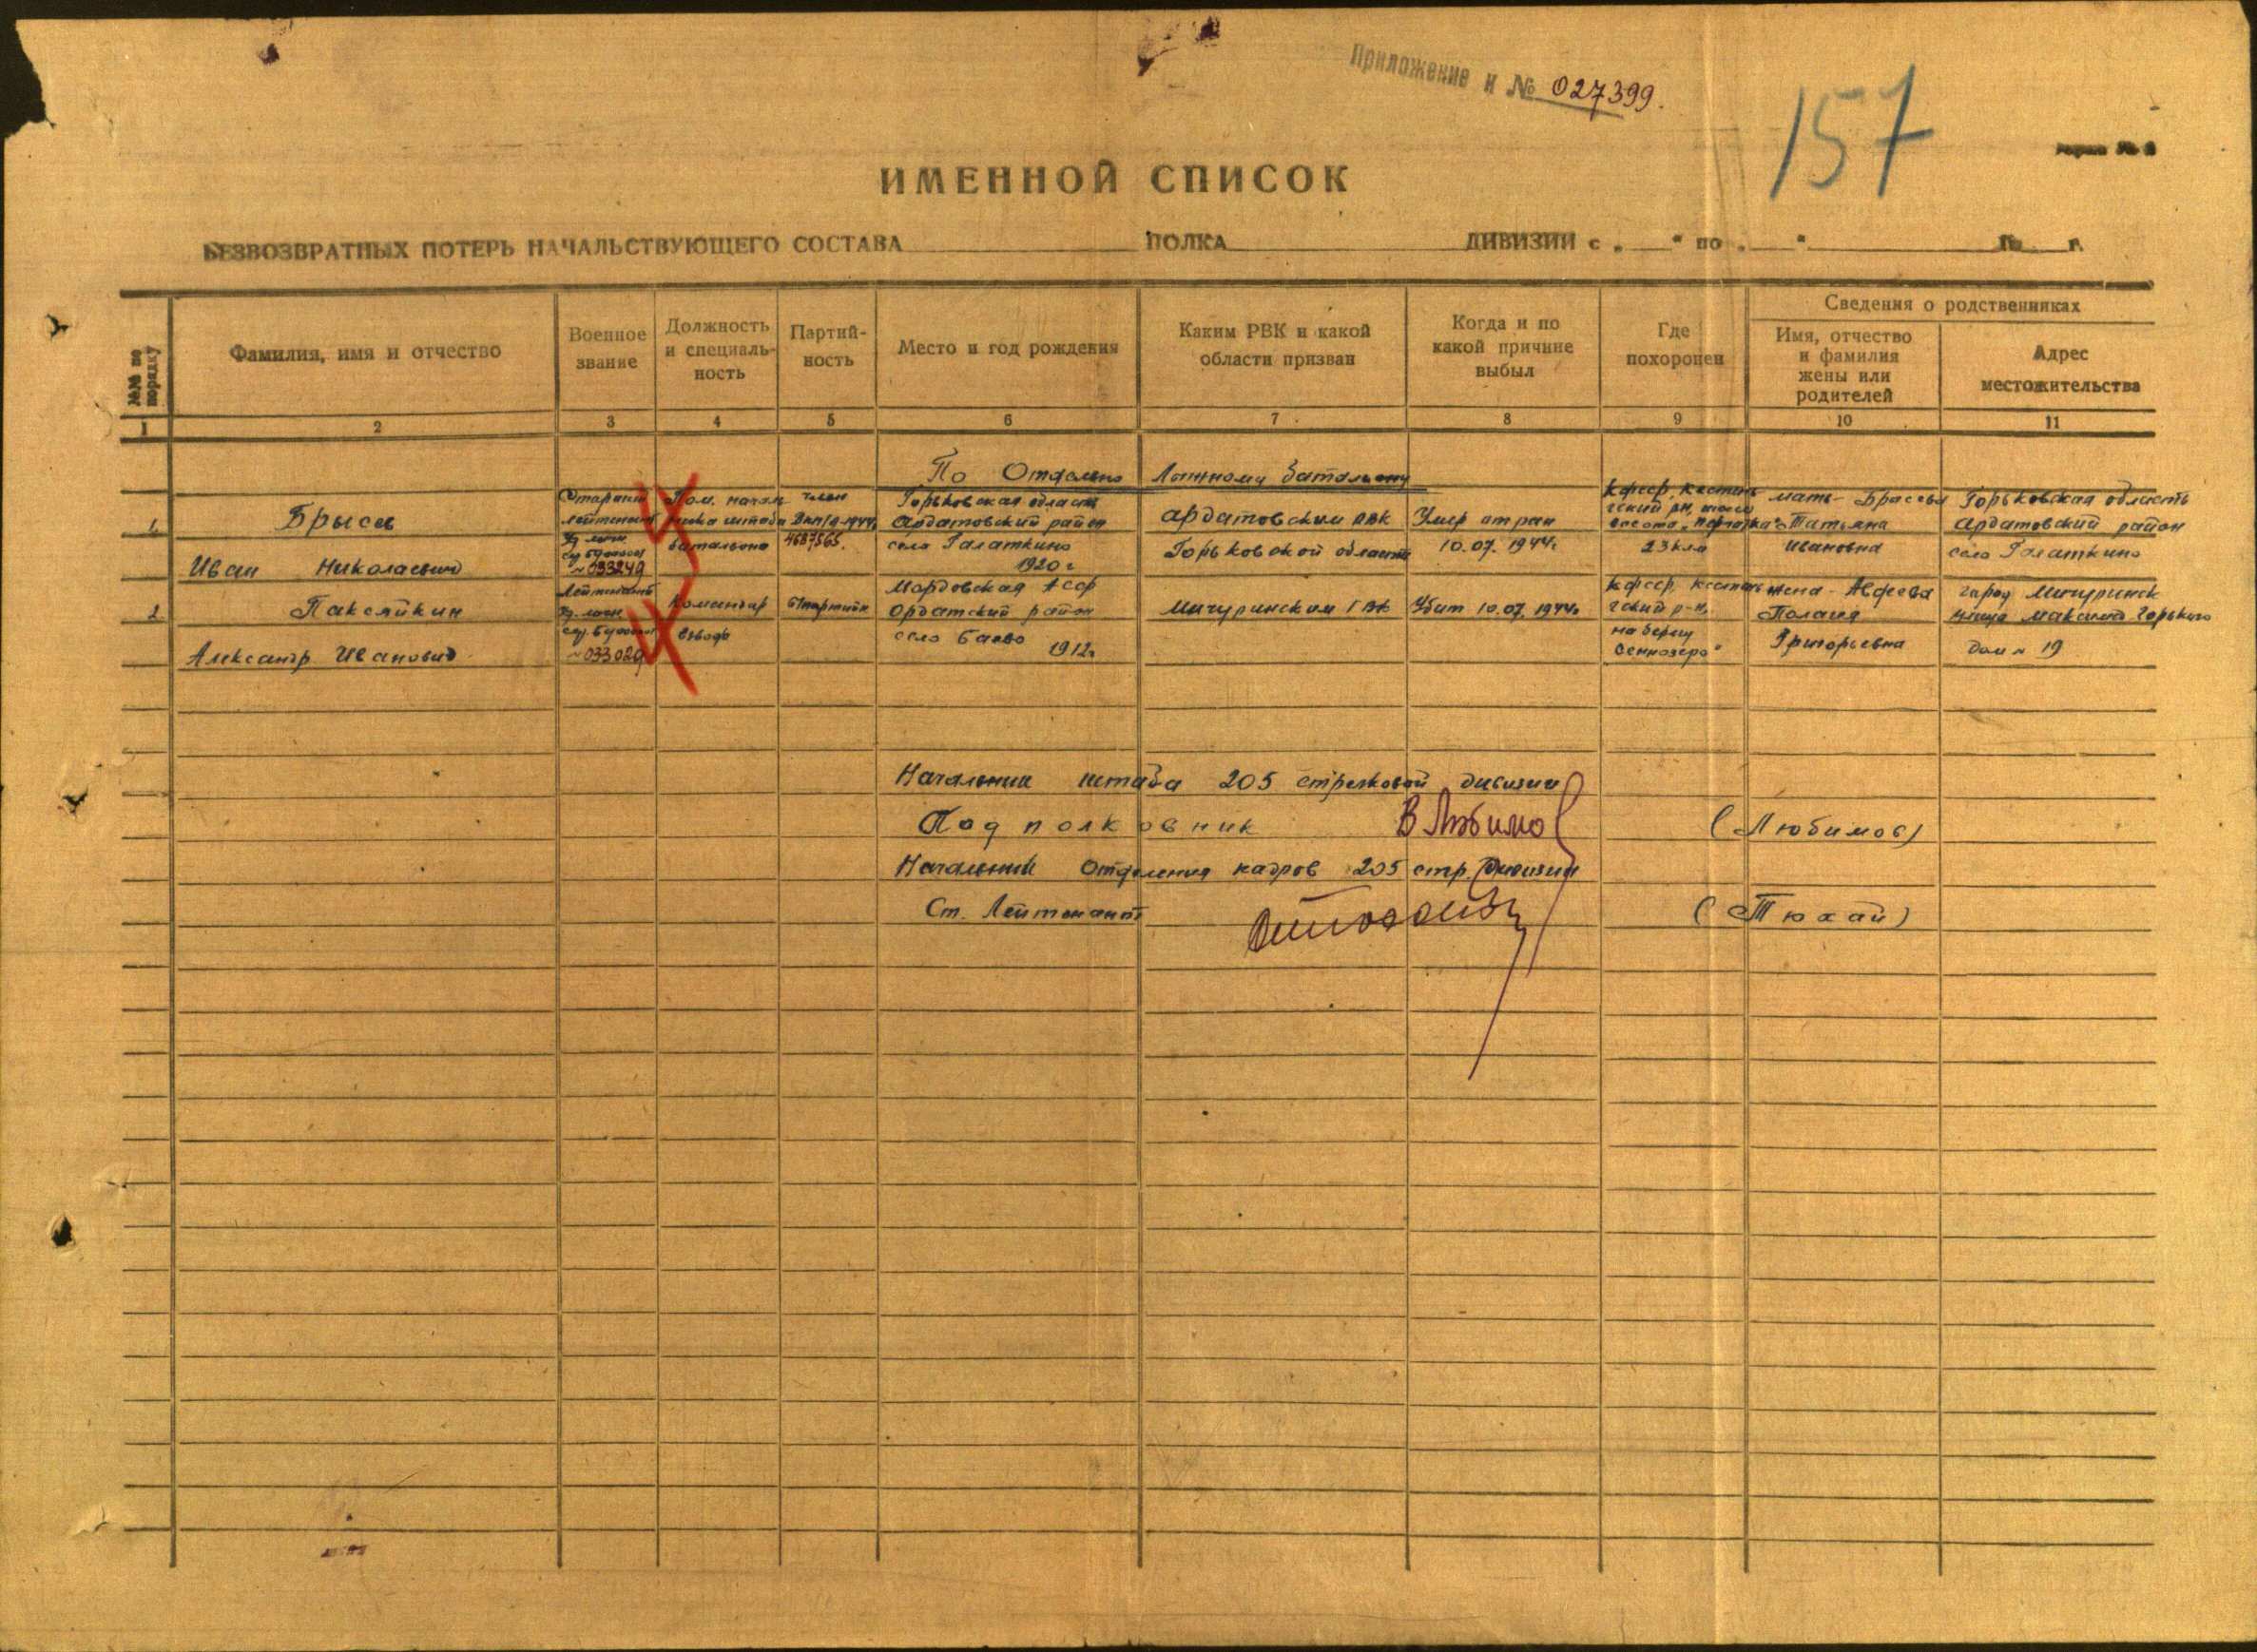 Приложение к № 027399.
157
ИМЕННОЙ СПИСОК
БЕЗВОЗВРАТНЫХ ПОТЕРЬ НАЧАЛЬСТВУЮЩЕГО СОСТАВА ПОЛКА ДИВИЗИИ с „ “ по „ “ г.
№№ по порядку
Фамилия, имя и отчество
Военное звание
Должность и специальность
Партийность
Место и год рождения
Каким РВК и какой области призван
Когда и по какой причине выбыл
Где похоронен
Сведения о родственниках
Имя, отчество и фамилия жены или родителей
Адрес местожительства
1 2 3 4 5 6 7 8 9 10 11
По Отдельно Лыжному батальону
1. Брысев
Иван Николаевич
Старший
лейтенант
уд. личн.
№ 033249
Пом. началь
ника штаба
батальона
член
4687565.
Горьковская область
Ардатовский район
село Голяткино
1920 г
Ардатовским РВК
Горьковской области
Умер от ран
10.07.1944г
КФССР, Кестень
гский рн,
высота
23 кл м
мать - Брысева
Татьяна
Ивановна
Горьковская область
Ардатовский район
село Голяткино
2. Паксяйкин
Александр Иванович
Лейтенант
уд. личн.
№ 033029
Командир
взвода
б/партийн
Мордовская АССР
Ордатский район
село Баево
1912г
Мичуринским ГВК
Убит 10.07.1944г
КФССР, Кестень
гский р-н,
на берегу
Сеннозеро"
жена - Авдеева
Полагея
Григорьевна
город Мичуринск
улица Максима Горького
дом № 19
Начальник штаба 205 стрелковой дивизии
Подполковник В Любимов (Любимов)
Начальник Отделения кадров 205 стр. Дивизии
Ст. Лейтенант (Тюхай)